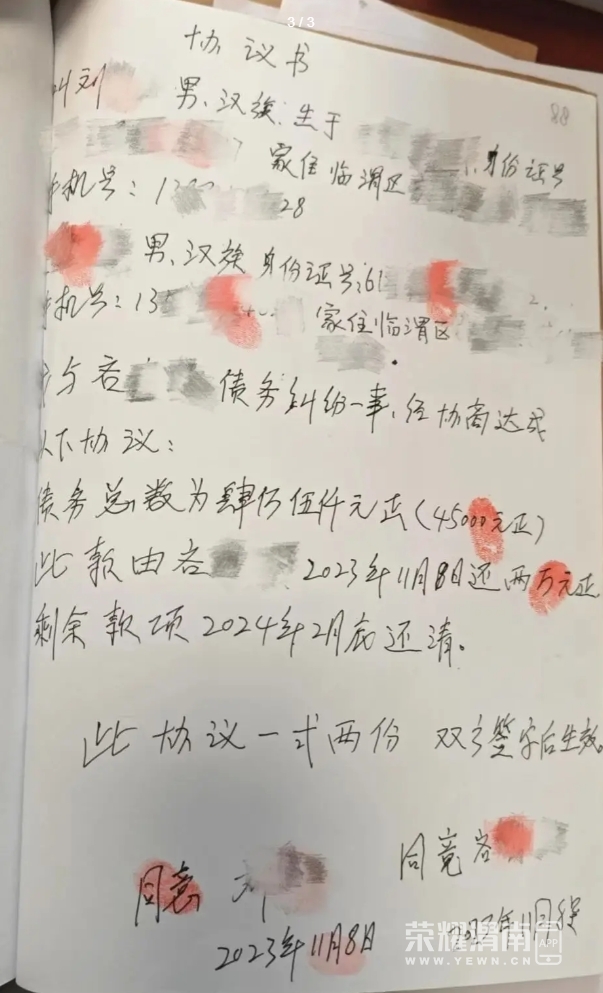 3/3
协议书
88
叫刘
男、汉族.生于
家住临渭区
身份证号
手机号:1 28
男、汉族 身份证号:61
手机号:13
家住临渭区
与呑 债务纠纷一事,经协商达成
以下协议:
债务总数为肆万伍仟元正(45000元正)
此款由呑 2023年11月8日还两万元正
剩余款项2024年2月底还清。
此协议一式两份 双方签字后生效。
同意
2023年11月8日
同意
2023年11月
荣耀渭南
APP
WWW.YEWN.CN